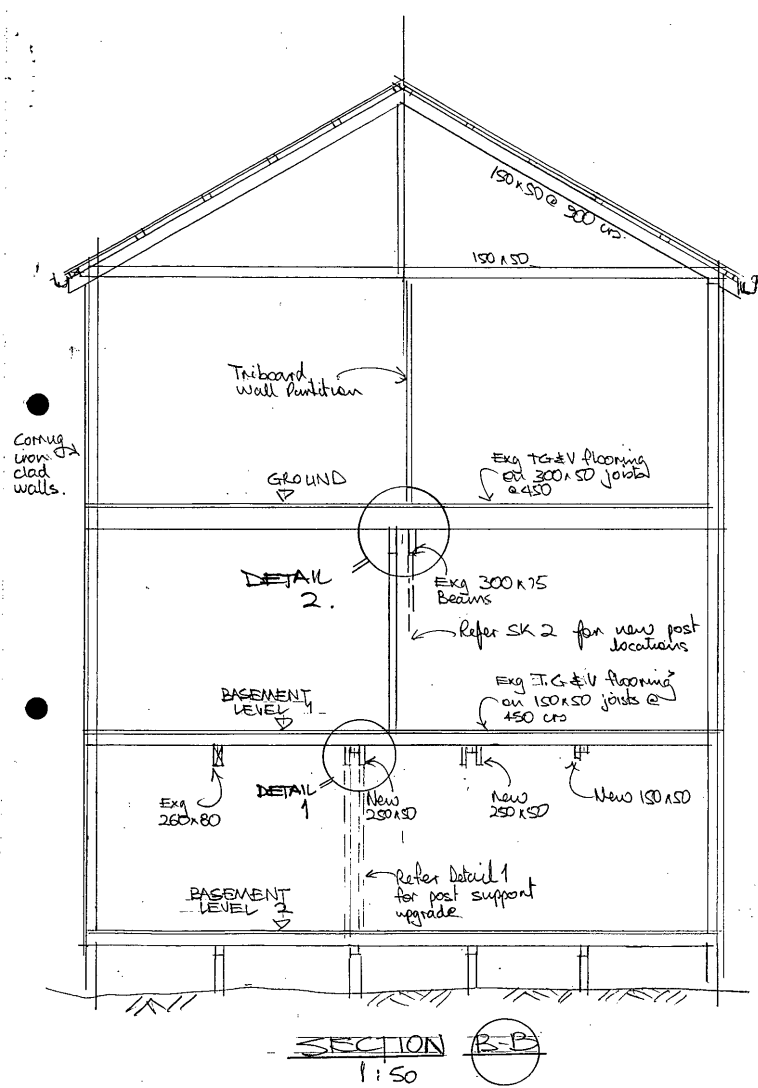 150x50 @ 900 crs.
150x50
Triboard
Wall Partition
Corrug
iron
clad
walls.
GROUND
Exg TG&V flooring
on 300x50 joists
@450
DETAIL
2.
Exg 300x75
Beams
Refer SK 2 for new post
locations
BASEMENT
LEVEL 1
Exg T.G&V flooring
on 150x50 joists @
450 crs
Exg
260x80
DETAIL
1
New
250x50
New
250x50
New 150x50
Refer Detail 1
for post support
upgrade
BASEMENT
LEVEL 2
SECTION B-B
1:50